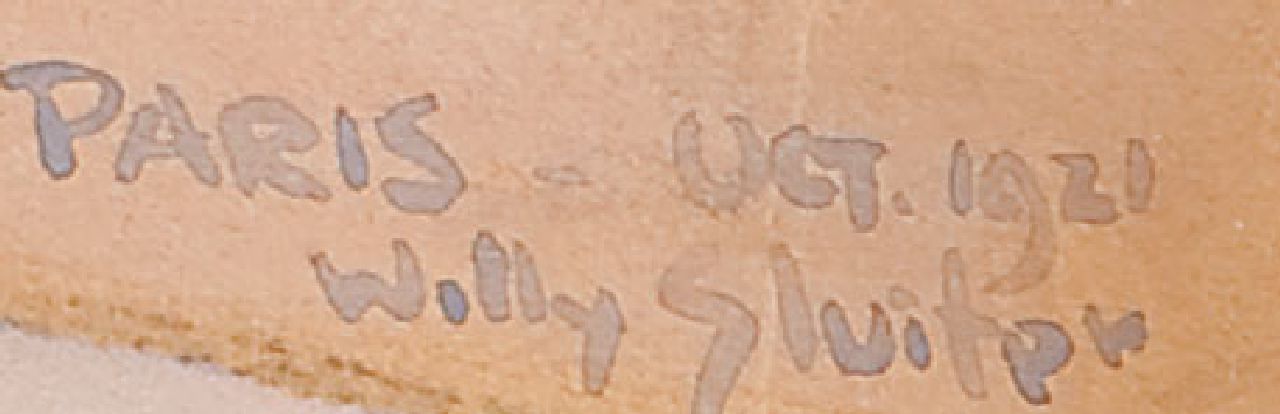 PARIS - OCT. 1921
Willy Sluiter